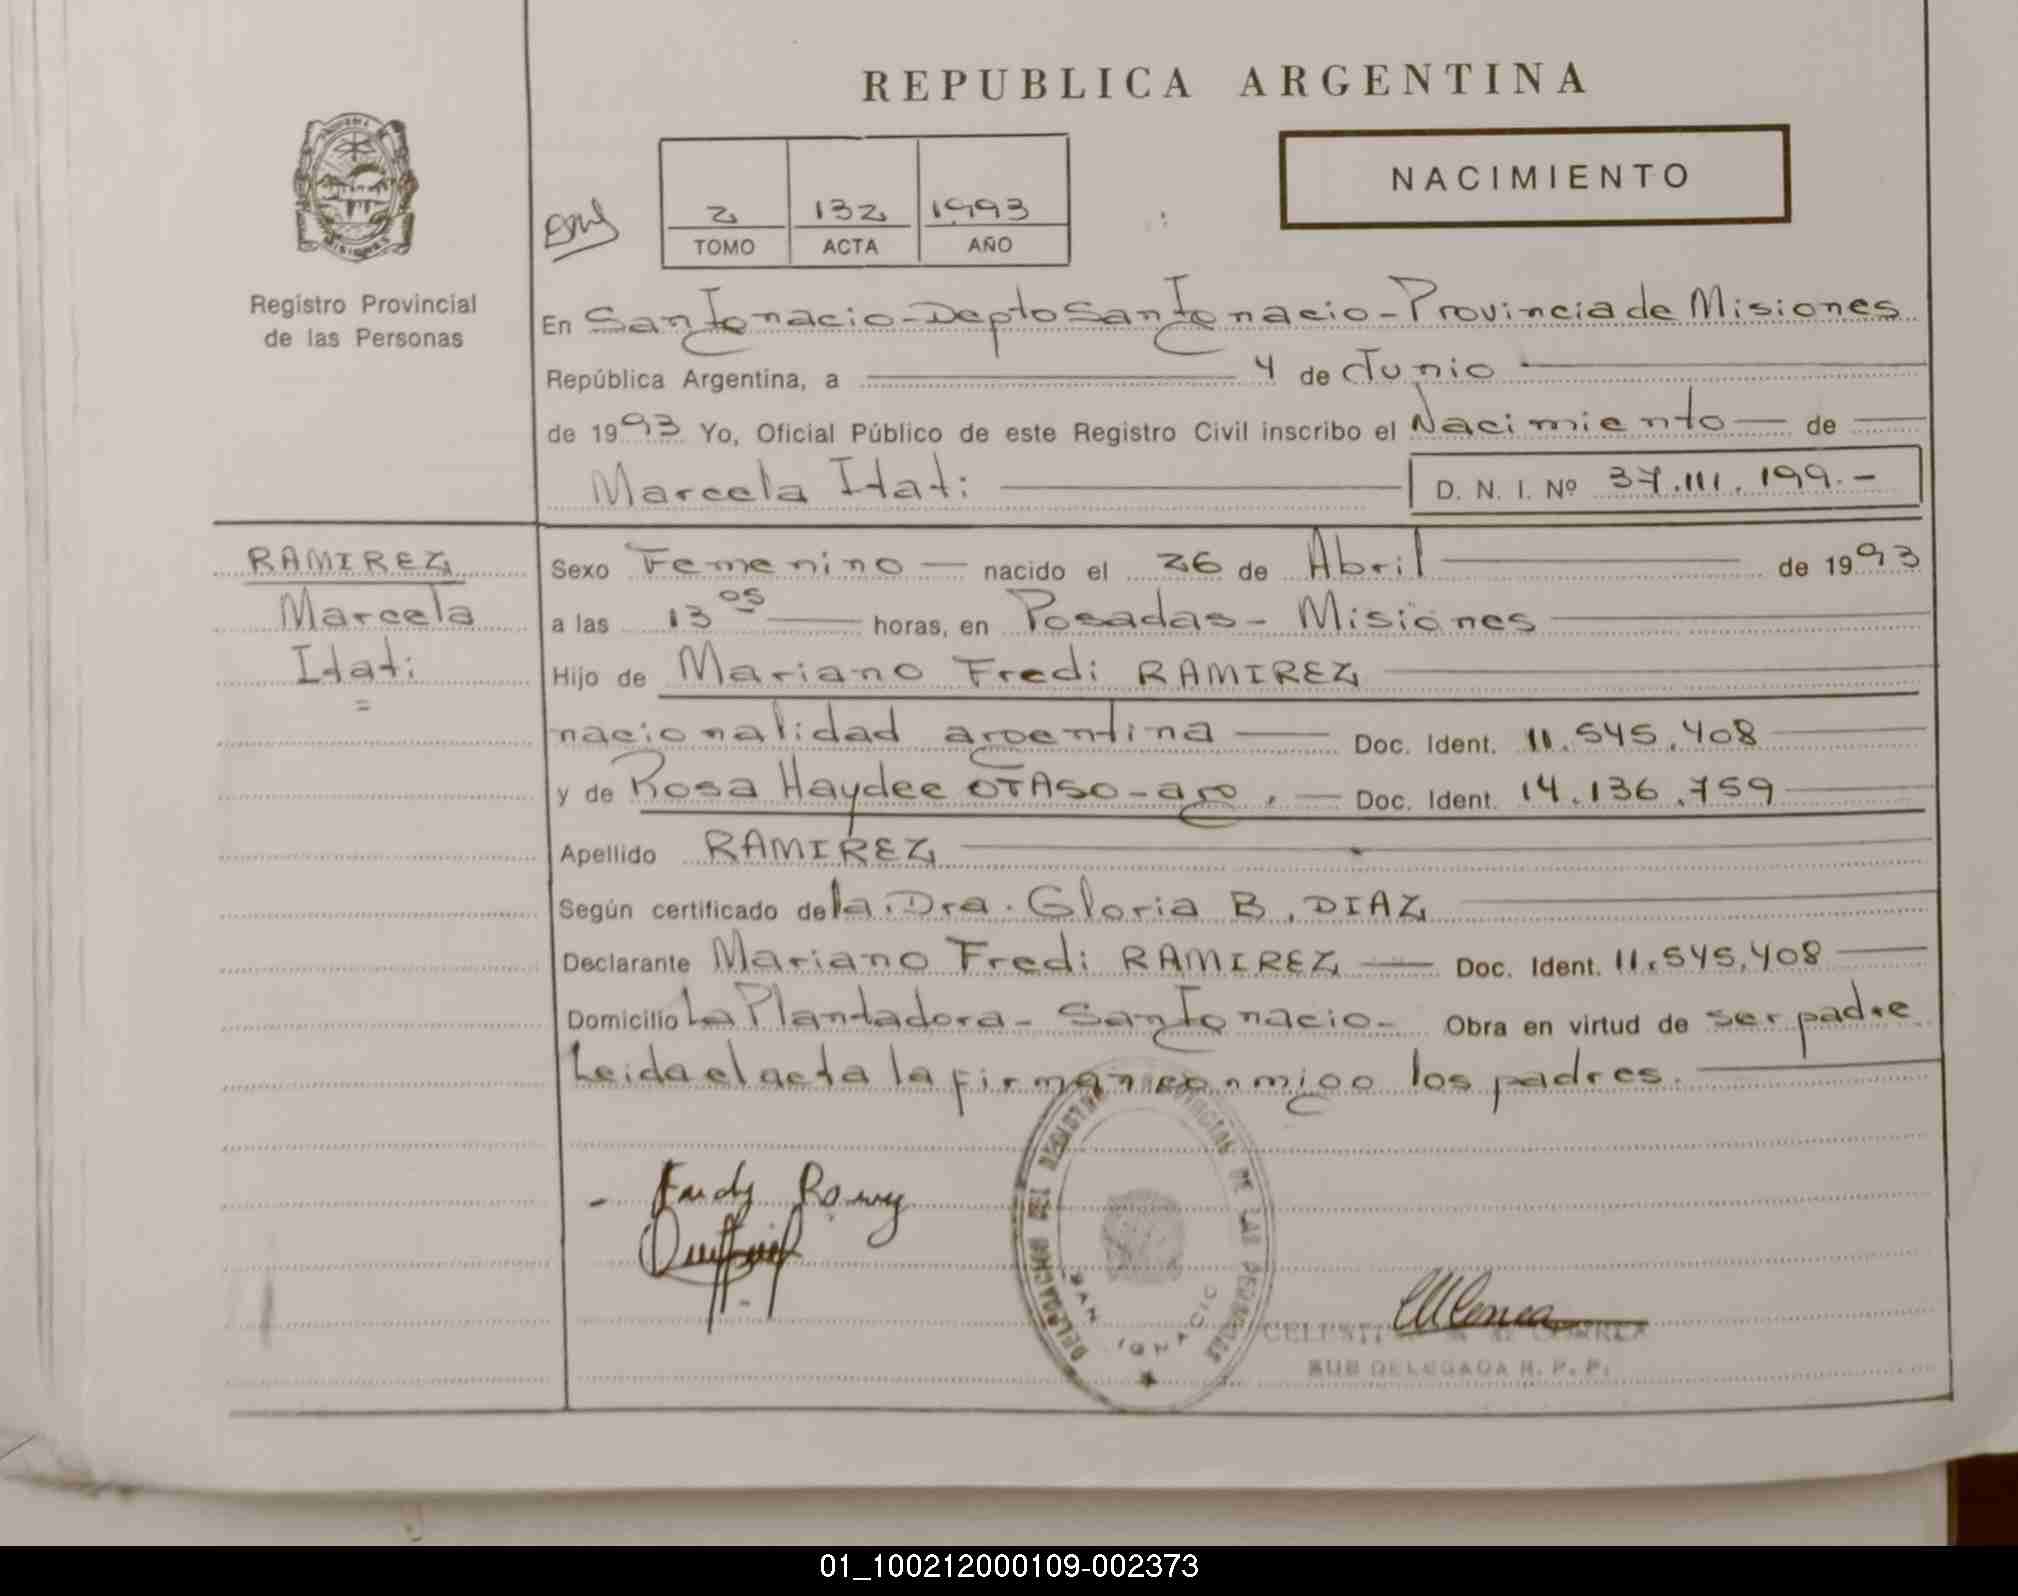 REPUBLICA ARGENTINA
NACIMIENTO
2 132 1993
TOMO ACTA AÑO
MISIONES
Registro Provincial
de las Personas
En San Ignacio - Depto San Ignacio - Provincia de Misiones
República Argentina, a 4 de Junio
de 1993 Yo, Oficial Público de este Registro Civil inscribo el Nacimiento de
Marcela Itati D. N. I. Nº 37.111.199.-
RAMIREZ
Marcela
Itati
=
Sexo Femenino nacido el 26 de Abril de 1993
a las 13 05 horas, en Posadas - Misiones
Hijo de Mariano Fredi RAMIREZ
nacionalidad argentina Doc. Ident. 11.545.408
y de Rosa Haydee OTASO - arg. Doc. Ident. 14.136.759
Apellido RAMIREZ
Según certificado de la Dra. Gloria B. DIAZ
Declarante Mariano Fredi RAMIREZ Doc. Ident. 11.545.408
Domicilio La Plantadora - San Ignacio - Obra en virtud de ser padre
Leida el acta la firman conmigo los padres.
REGISTRO PROVINCIAL DE LAS PERSONAS
DELEGACION
SAN IGNACIO
CORREA
SUB DELEGADA R. P. P.
01_100212000109-002373